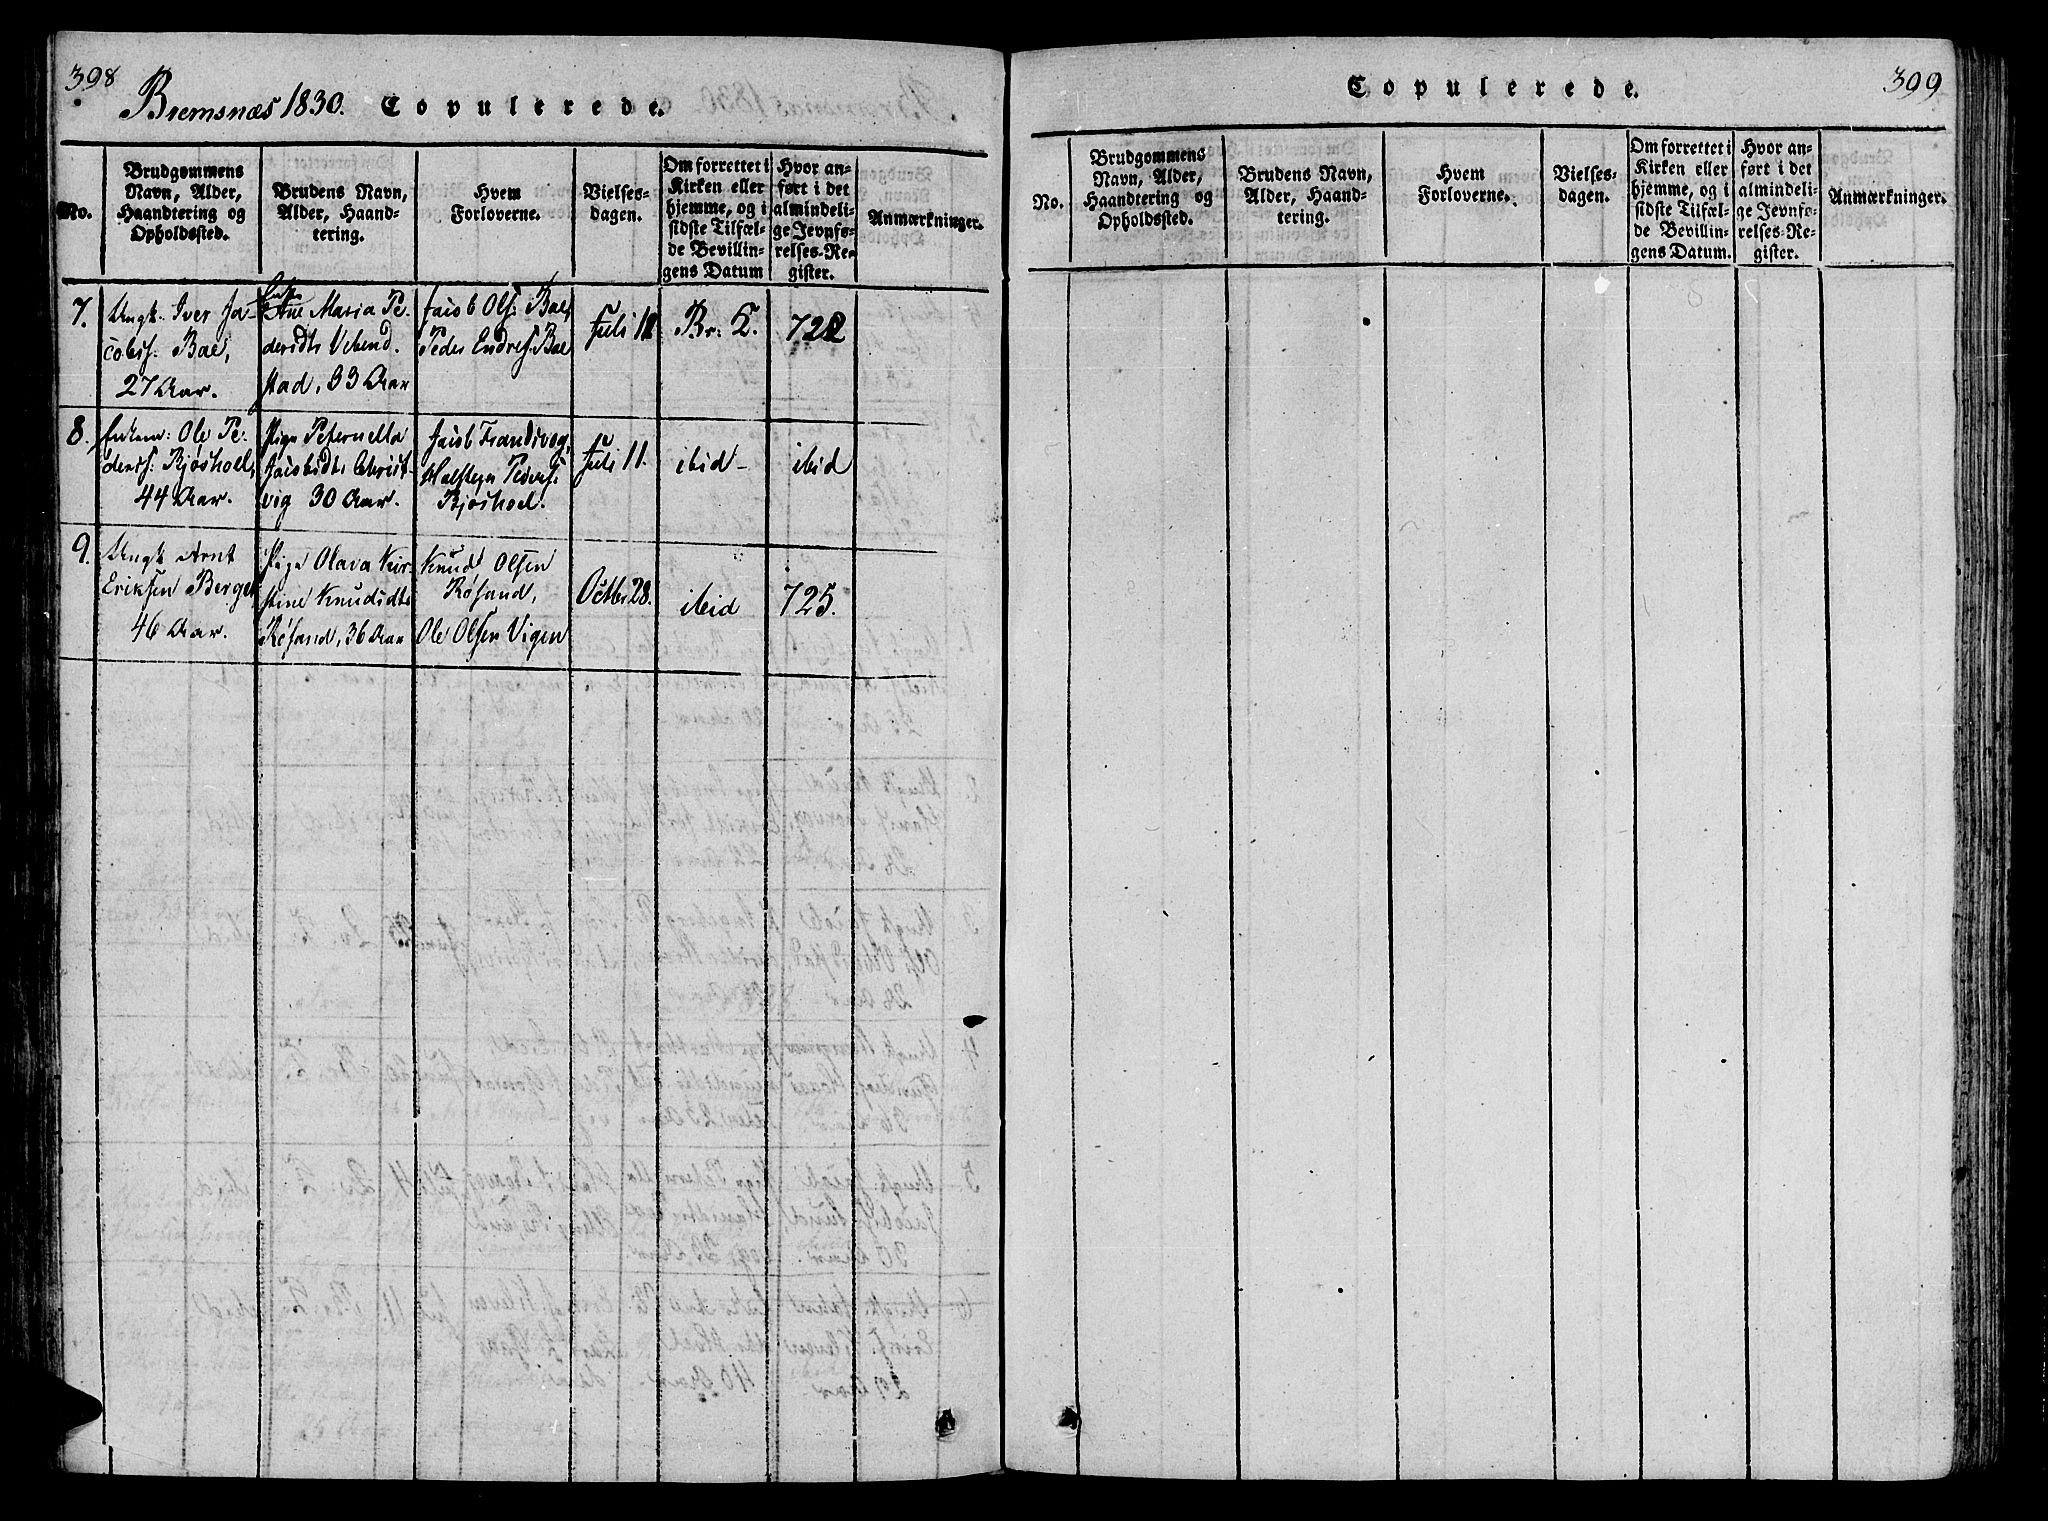 398
Bremsnæs 1830. Copulerede.
No.
Brudgommens
Navn, Alder,
Haandtering og
Opholdssted.
Brudens Navn,
Alder, Haand-
tering.
Hvem
Forloverne.
Vielses-
dagen.
Om forrettet i
Kirken eller
hjemme, og i
sidste Tilfæl-
de Bevillin-
gens Datum
Hvor an-
ført i det
almindeli-
ge Jevnfø-
relses-Re-
gister.
Anmærkninger.
7.
Ungk. Iver Ja-
cobs: Bae,
27 Aar.
Enke
Ane Maria Pe-
dersdtr Vebend-
stad, 33 Aar
Jacob Ols: Bae,
Peder Endres: Bae
Juli 11
Br: K.
722
8.
Enkem: Ole Pe-
ders: Bjøshoel,
44 Aar.
Pige Peternella
Jacobsdtr Christ-
vig 30 Aar.
Jacob Frandsvog,
Halsteen Peders:
Bjøshoel.
Juli 11.
ibid
ibid
9.
Ungk Arnt
Eriksen Berget
46 Aar.
Pige Olava Kir-
stine Knudsdtr
Røsand, 36 Aar
Knud Olsen
Røsand,
Ole Olsen Vigen
Octbr 28.
ibid
725.
Copulerede.
399
No.
Brudgommens
Navn, Alder,
Haandtering og
Opholdssted.
Brudens Navn,
Alder, Haand-
tering.
Hvem
Forloverne.
Vielses-
dagen.
Om forrettet i
Kirken eller
hjemme, og i
sidste Tilfæl-
de Bevillin-
gens Datum.
Hvor an-
ført i det
almindeli-
ge Jevnfø-
relses-Re-
gister.
Anmærkninger.